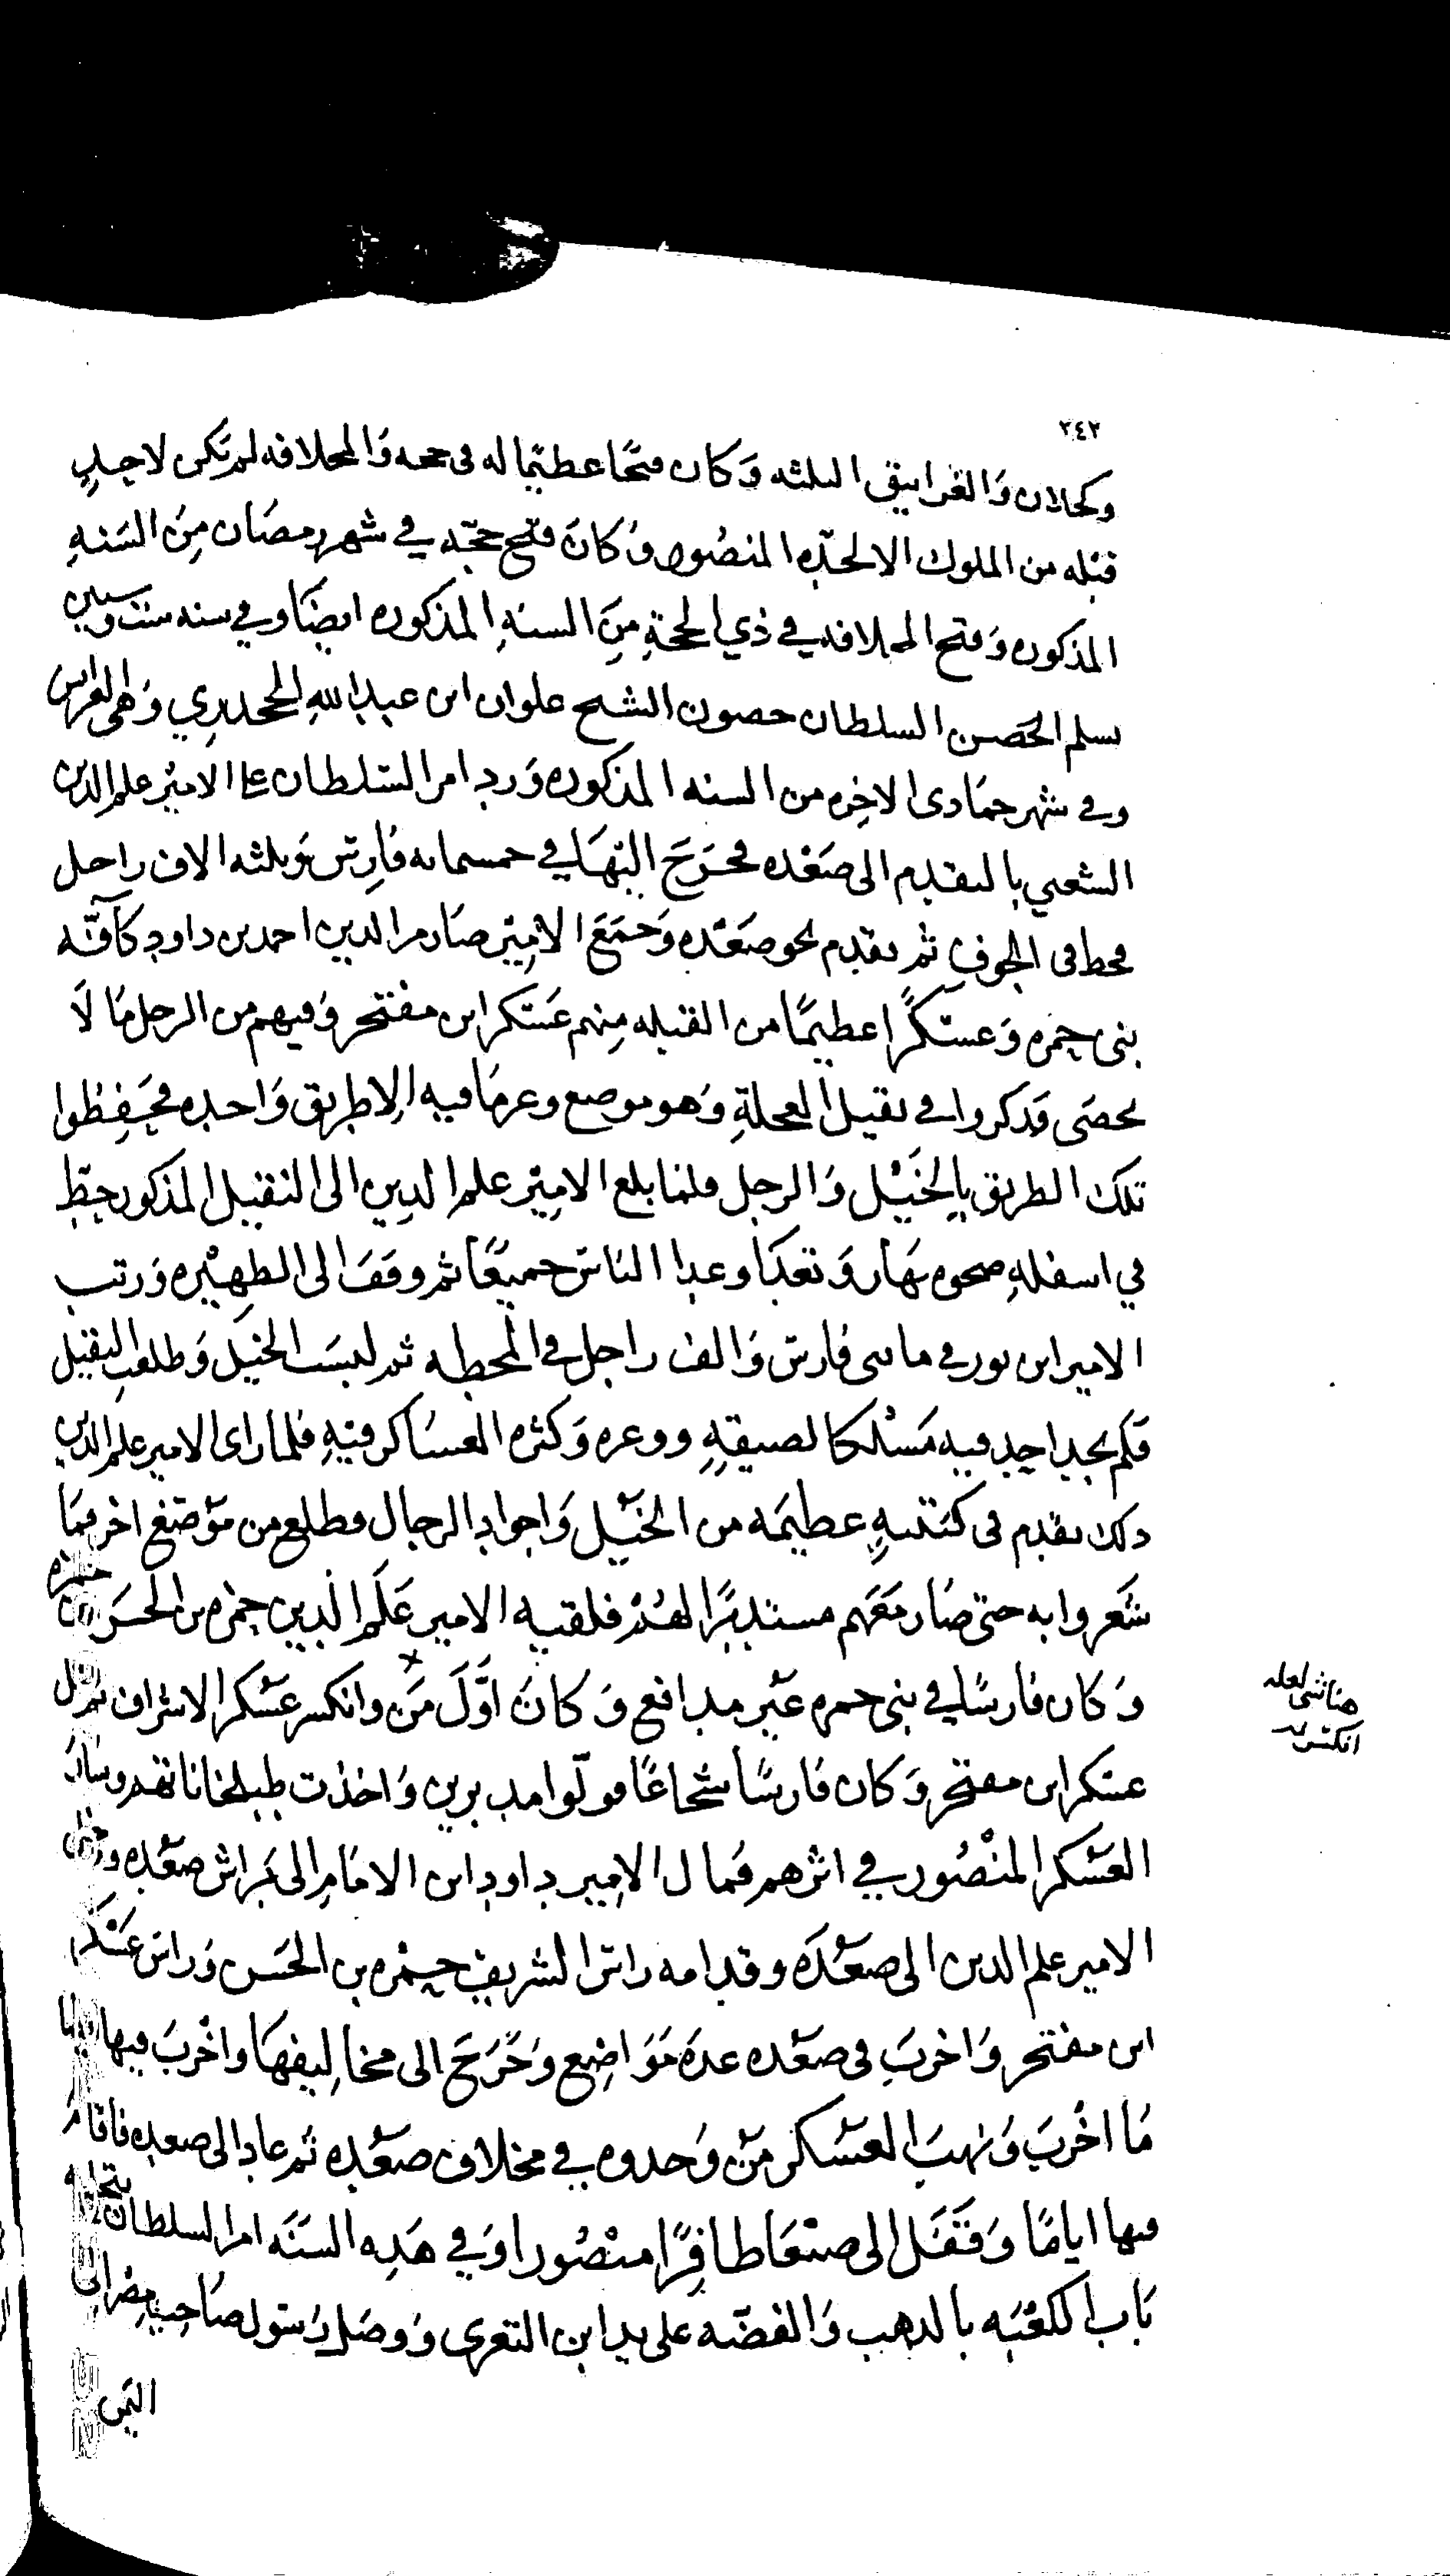 ٢٤٢
وكحلان والغرانيق الثلثه وَكان فتحًا عظيمًا له فى حجه وَالمخلافه لم تكن لاحدٍ
قبله من الملوك الا لجدّه المنصُور وكانَ فتح حجّه في شهر رمضان مِنَ السَنهِ
المذكوره وَفتح المخلافه في ذي الحجةِ مِنَ السنهِ المذكوره ايضًا وفي سنه ستت وستين
تسلم الحَصن السلطان حصون الشيخ علوان ابن عبد اللهِ الجحدري وَهى العرايس
وفي شهر جمَادى الاخِره من السنه المذكوره وَرد امر السّلطان على الامير علم الدين
الشعبي بالتقدم الى صَعْده فخَرَجَ اليهَا في خمسمايه فارِس وَثلثه الاف راجل
فحط فى الجوفِ ثم تقدم نحو صَعْده وَجمَعَ الامِير صَارم الدين احمد بن داود كآفّه
بنى حمزه وَعسكرًا عظيمًا من القبله مِنهم عَسْكر ابن مفتخر وَفيهم من الرجل مَا لَا
يحصَى وَذكروا في نقيل العجلةِ وَهو موضع وعر مَا فيه اِلا طريق وَاحده فحَفِظُوا
تلك الطريق بالخَيْل وَالرجل فلما بلغ الامِير علم الدِين الى النقيل المذكور حطّ
في اسفلهِ ضحوه نهَار وَتغدَا وغدا النَاس جميعًا ثم وقفَ الى الظهيْره وَرتب
الامير ابن نور في مائتى فارس وَالف راجل في المحطه ثم لبسَت الخيَل وَطلعت النقيل
فَلم يجد احد فيه مَسْلكا لضيقهِ ووعره وَكثره العسَاكر فيهِ فلما راى الامير علم الدين
ذلك تقدم فى كتيبهٍ عظيمَه من الخَيْل وَاجواد الرجال وطلع من مَوْضع اخر فمَا
شعَروا به حتى صَار مَعَهم مستديرًا لهُم فلقيه الامير عَلَم الدين حمزه بن الحسَن بن حمزه
وَكان فارسًا في بنى حمزه غيْر مدافع وَكانَ اوَّلَ مَن وانكسر عَسْكر الاشراف ثم قتل
عسكر ابن مفتخر وَكان فارسًا شجاعًا فولّوا مدبرين وَاخذت طبلخاناتهم وسَار
العَسْكر المنْصُور في اثرهم فمَال الامِير داود ابن الامَامِ الى بَراش صعْده ودخل
الامير علم الدين الى صَعْدَه وقدامه راس الشريف حمزه بن الحَسَن وَراس عَسْكر
ابن مفتخر وَاخربَ فى صعْده عدة مَوَاضِع وَخَرَجَ الى مخاليفهَا واخْربَ فيها
مَا اخْربَ وَنهبَ العسْكر مَنْ وَجدوه في مخلاف صَعْده ثم عاد الى صعده فاقام
فيها ايامًا وَقَفَل الى صنعَا ظافِرًا منصُورا وَفي هَذِه السَنَه امر السلطان بتحليه
بَاب الكعْبَه بالدهب وَالفضّه على يد ابن التعزى وَوصَل رَسول صَاحب مصر الى
اليَمن
هنا شى لعله
انكسر